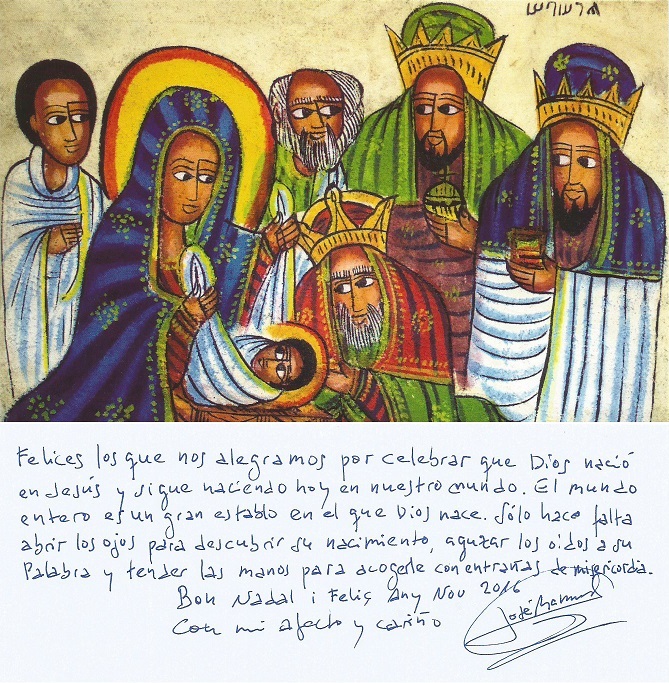 Felices los que nos alegramos por celebrar que Dios nació
en Jesús y sigue naciendo hoy en nuestro mundo. El mundo
entero es un gran establo en el que Dios nace. Sólo hace falta
abrir los ojos para descubrir su nacimiento, aguzar los oidos a su
Palabra y tender las manos para acogerle con entrañas de misericordia.
Bon Nadal i Feliç Any Nou 2016
Con mi afecto y cariño
José